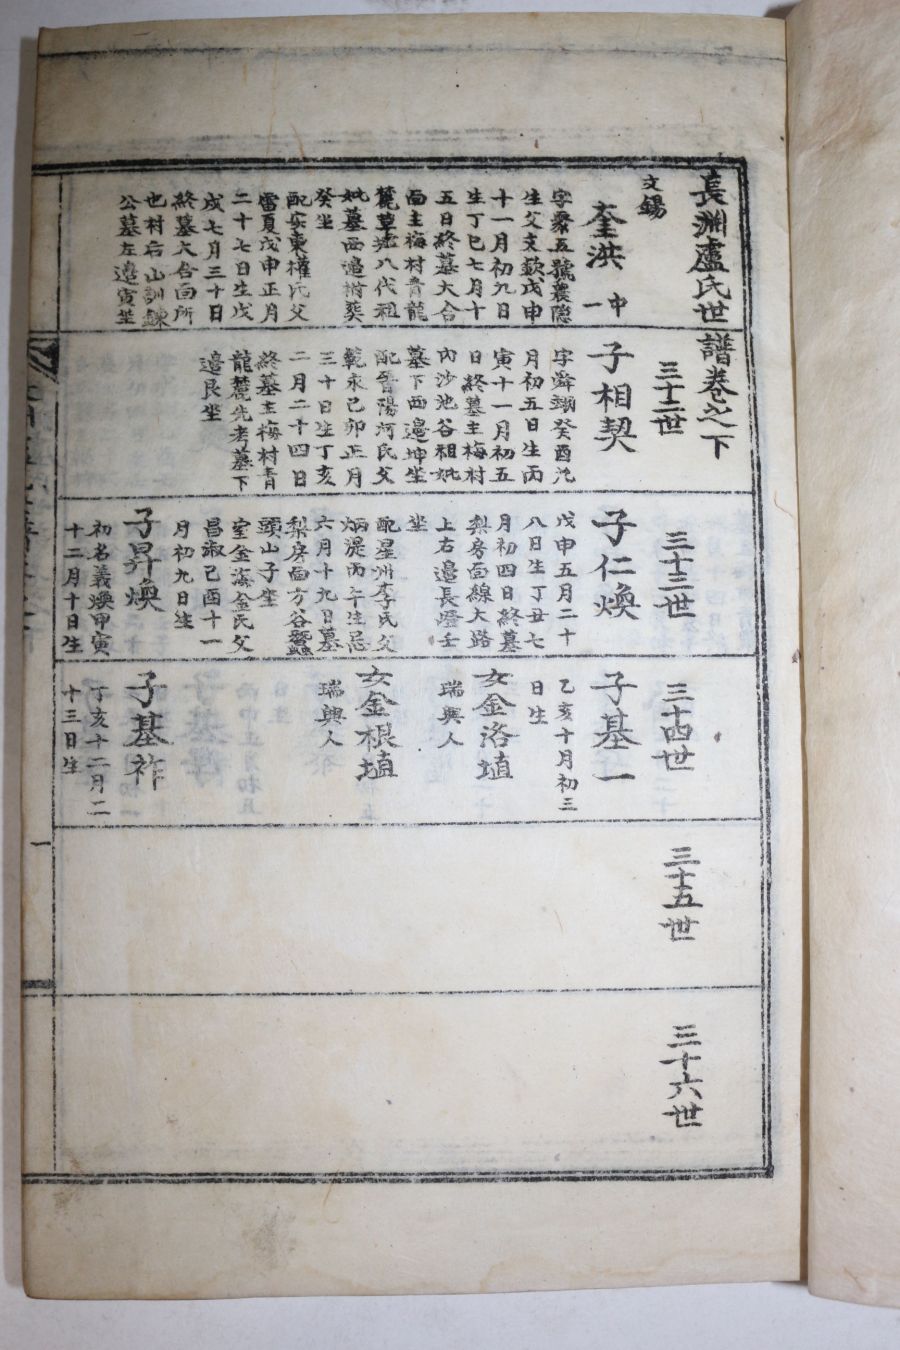 長淵盧氏世譜卷之下
文錫
奎洪 中一
字聚五號農隱
生父支欽戊申
十一月初九日
生丁巳七月十
五日終墓大合
面主梅村靑龍
麓草坮八代祖
妣墓西邉祔葵
癸坐
配安東權氏父
雷夏戊申正月
二十七日生戊
戌七月三十日
終墓大合面所
也村后山訓鍊
公墓左邉寅坐
三十二世
子相契
字舜瑚癸酉九
月初五日生丙
寅十一月初五
日終墓主梅村
內沙池谷祖妣
墓下西邉坤坐
配晉陽河氏父
範永己卯正月
三十日生丁亥
二月二十四日
終墓主梅村青
龍麓先考墓下
邉艮坐
三十三世
子仁煥
戊申五月二十
八日生丁丑七
月初四日終墓
梨房面線大路
上右邉長燈壬
坐
配星州李氏父
炳湜丙午生忌
六月十九日墓
梨房面方谷蠶
頭山子坐
室金海金氏父
昌淑己酉十一
月初九日生
子昇煥
初名義煥甲寅
十二月十日生
三十四世
子基一
乙亥十月初三
日生
女金洛埴
瑞興人
女金根埴
瑞興人
子基祚
丁亥十二月二
十三日生
三十五世
三十六世
一